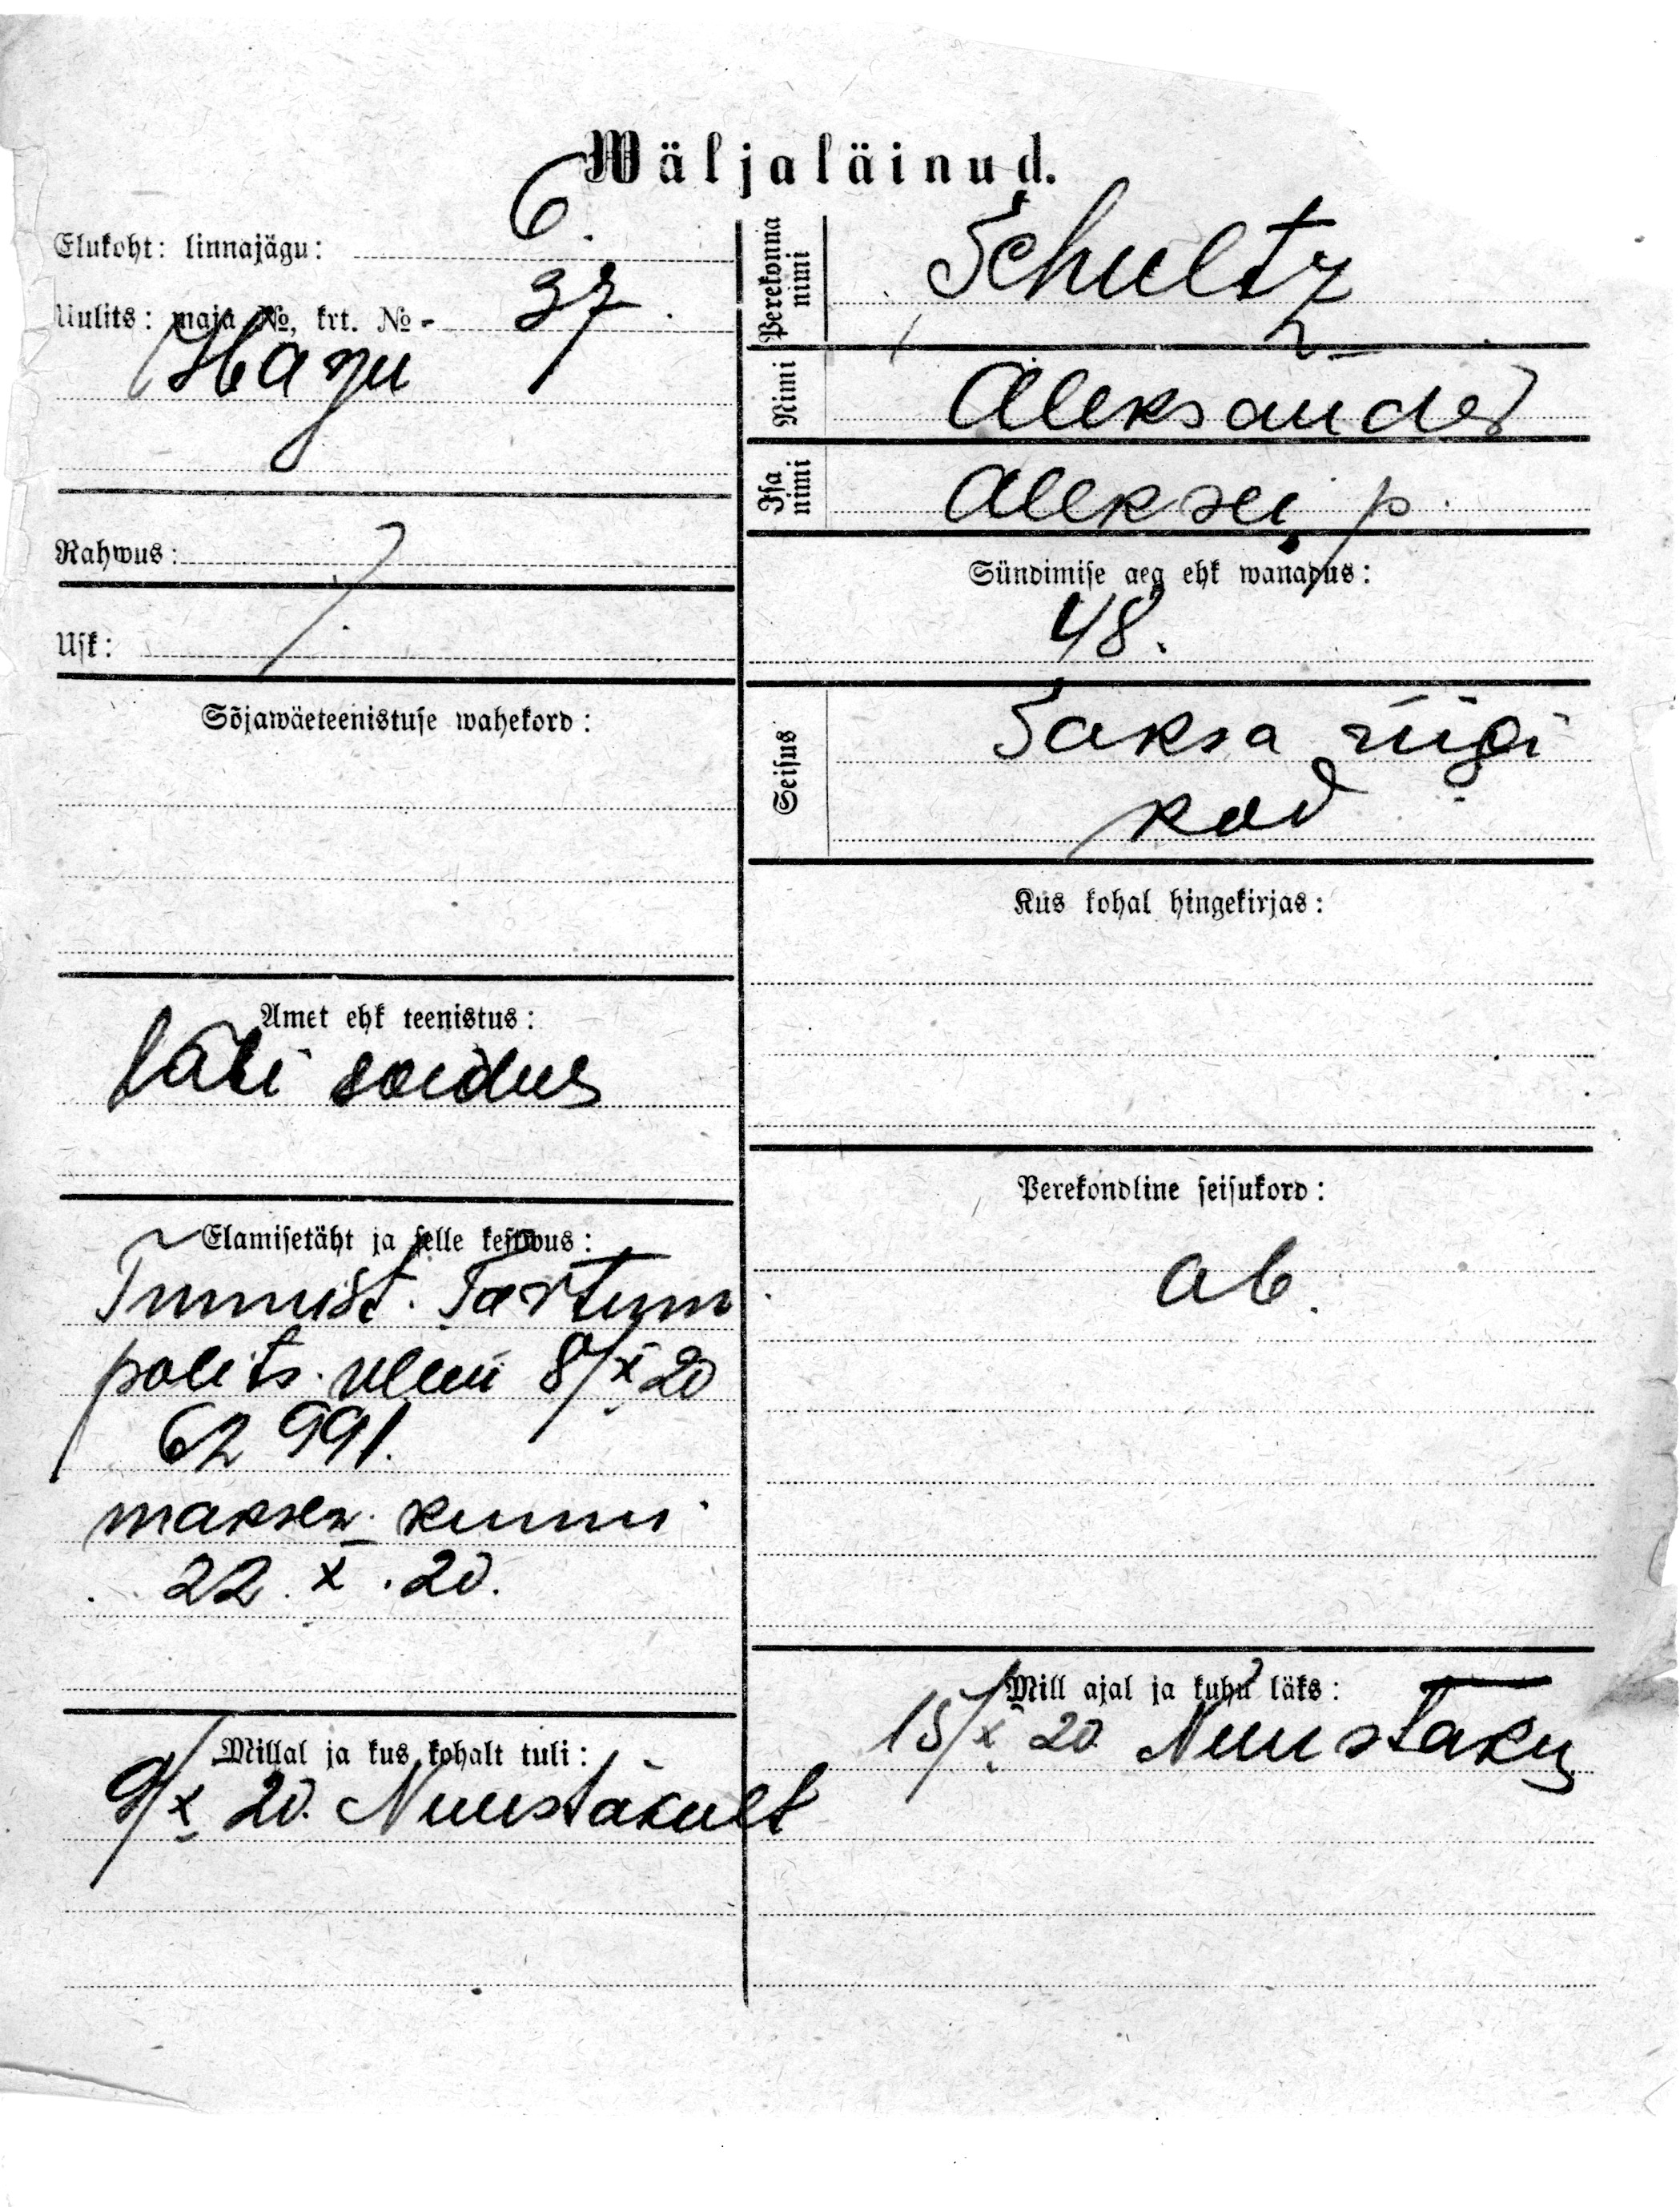 Wäljaläinud.
Elukoht: linnajägu: 6.
Uulits: maja No, krt. No - 37
Perekonna nimi Schultz
Nimi Aleksander
Isa nimi Aleksei p.
Rahwus:
Usk:
Sündimise aeg ehk wanadus:
48.
Sõjawäeteenistuse wahekord:
Seisus Saksa riigi
kod
Kus kohal hingekirjas:
Amet ehk teenistus:
läbi soidus
Perekondline seisukord:
ab.
Elamisetäht ja selle kestwus:
Tunnist. Tartum
polits. ülem 8/X 20
62 991.
maksew. kunni
22. X. 20.
Millal ja kus kohalt tuli:
9/X 20. Nuustakult
Mill ajal ja kuhu läks:
15/X 20 Nuustaku